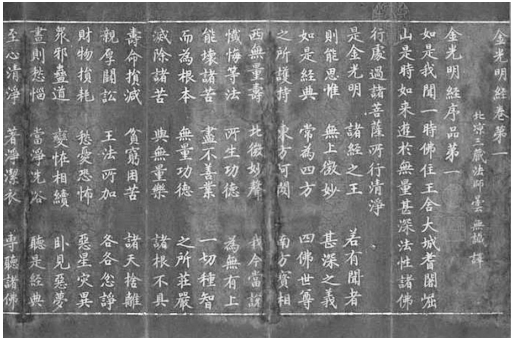 金光明經卷第一
北涼三藏法師曇無讖譯
金光明經序品第一
如是我聞一時佛住王舍大城耆闍崛
山是時如來遊於無量甚深法性諸佛
行處過諸菩薩所行清淨
是金光明 諸經之王 若有聞者
則能思惟 無上微妙 甚深之義
如是經典 常為四方 四佛世尊
之所護持 東方阿閦 南方寶相
西無量壽 北微妙聲 我今當說
懺悔等法 所生功德 為無有上
能壞諸苦 盡不善業 一切種智
而為根本 無量功德 之所莊嚴
滅除諸苦 與無量樂 諸根不具
壽命損減 貧窮困苦 諸天捨離
親厚鬪訟 王法所加 各各忿諍
財物損耗 愁憂恐怖 惡星災異
眾邪蠱道 變怪相續 臥見惡夢
晝則愁惱 當淨洗浴 聽是經典
至心清淨 著淨潔衣 專聽諸佛